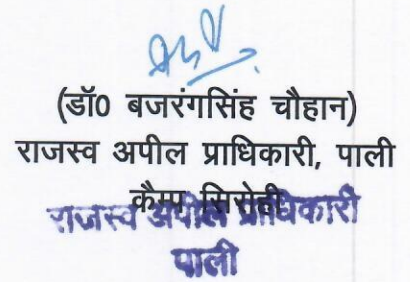 (डॉ0 बजरंगसिंह चौहान)
राजस्व अपील प्राधिकारी, पाली
कैम्प सिरोही
राजस्व अपील प्राधिकारी
पाली